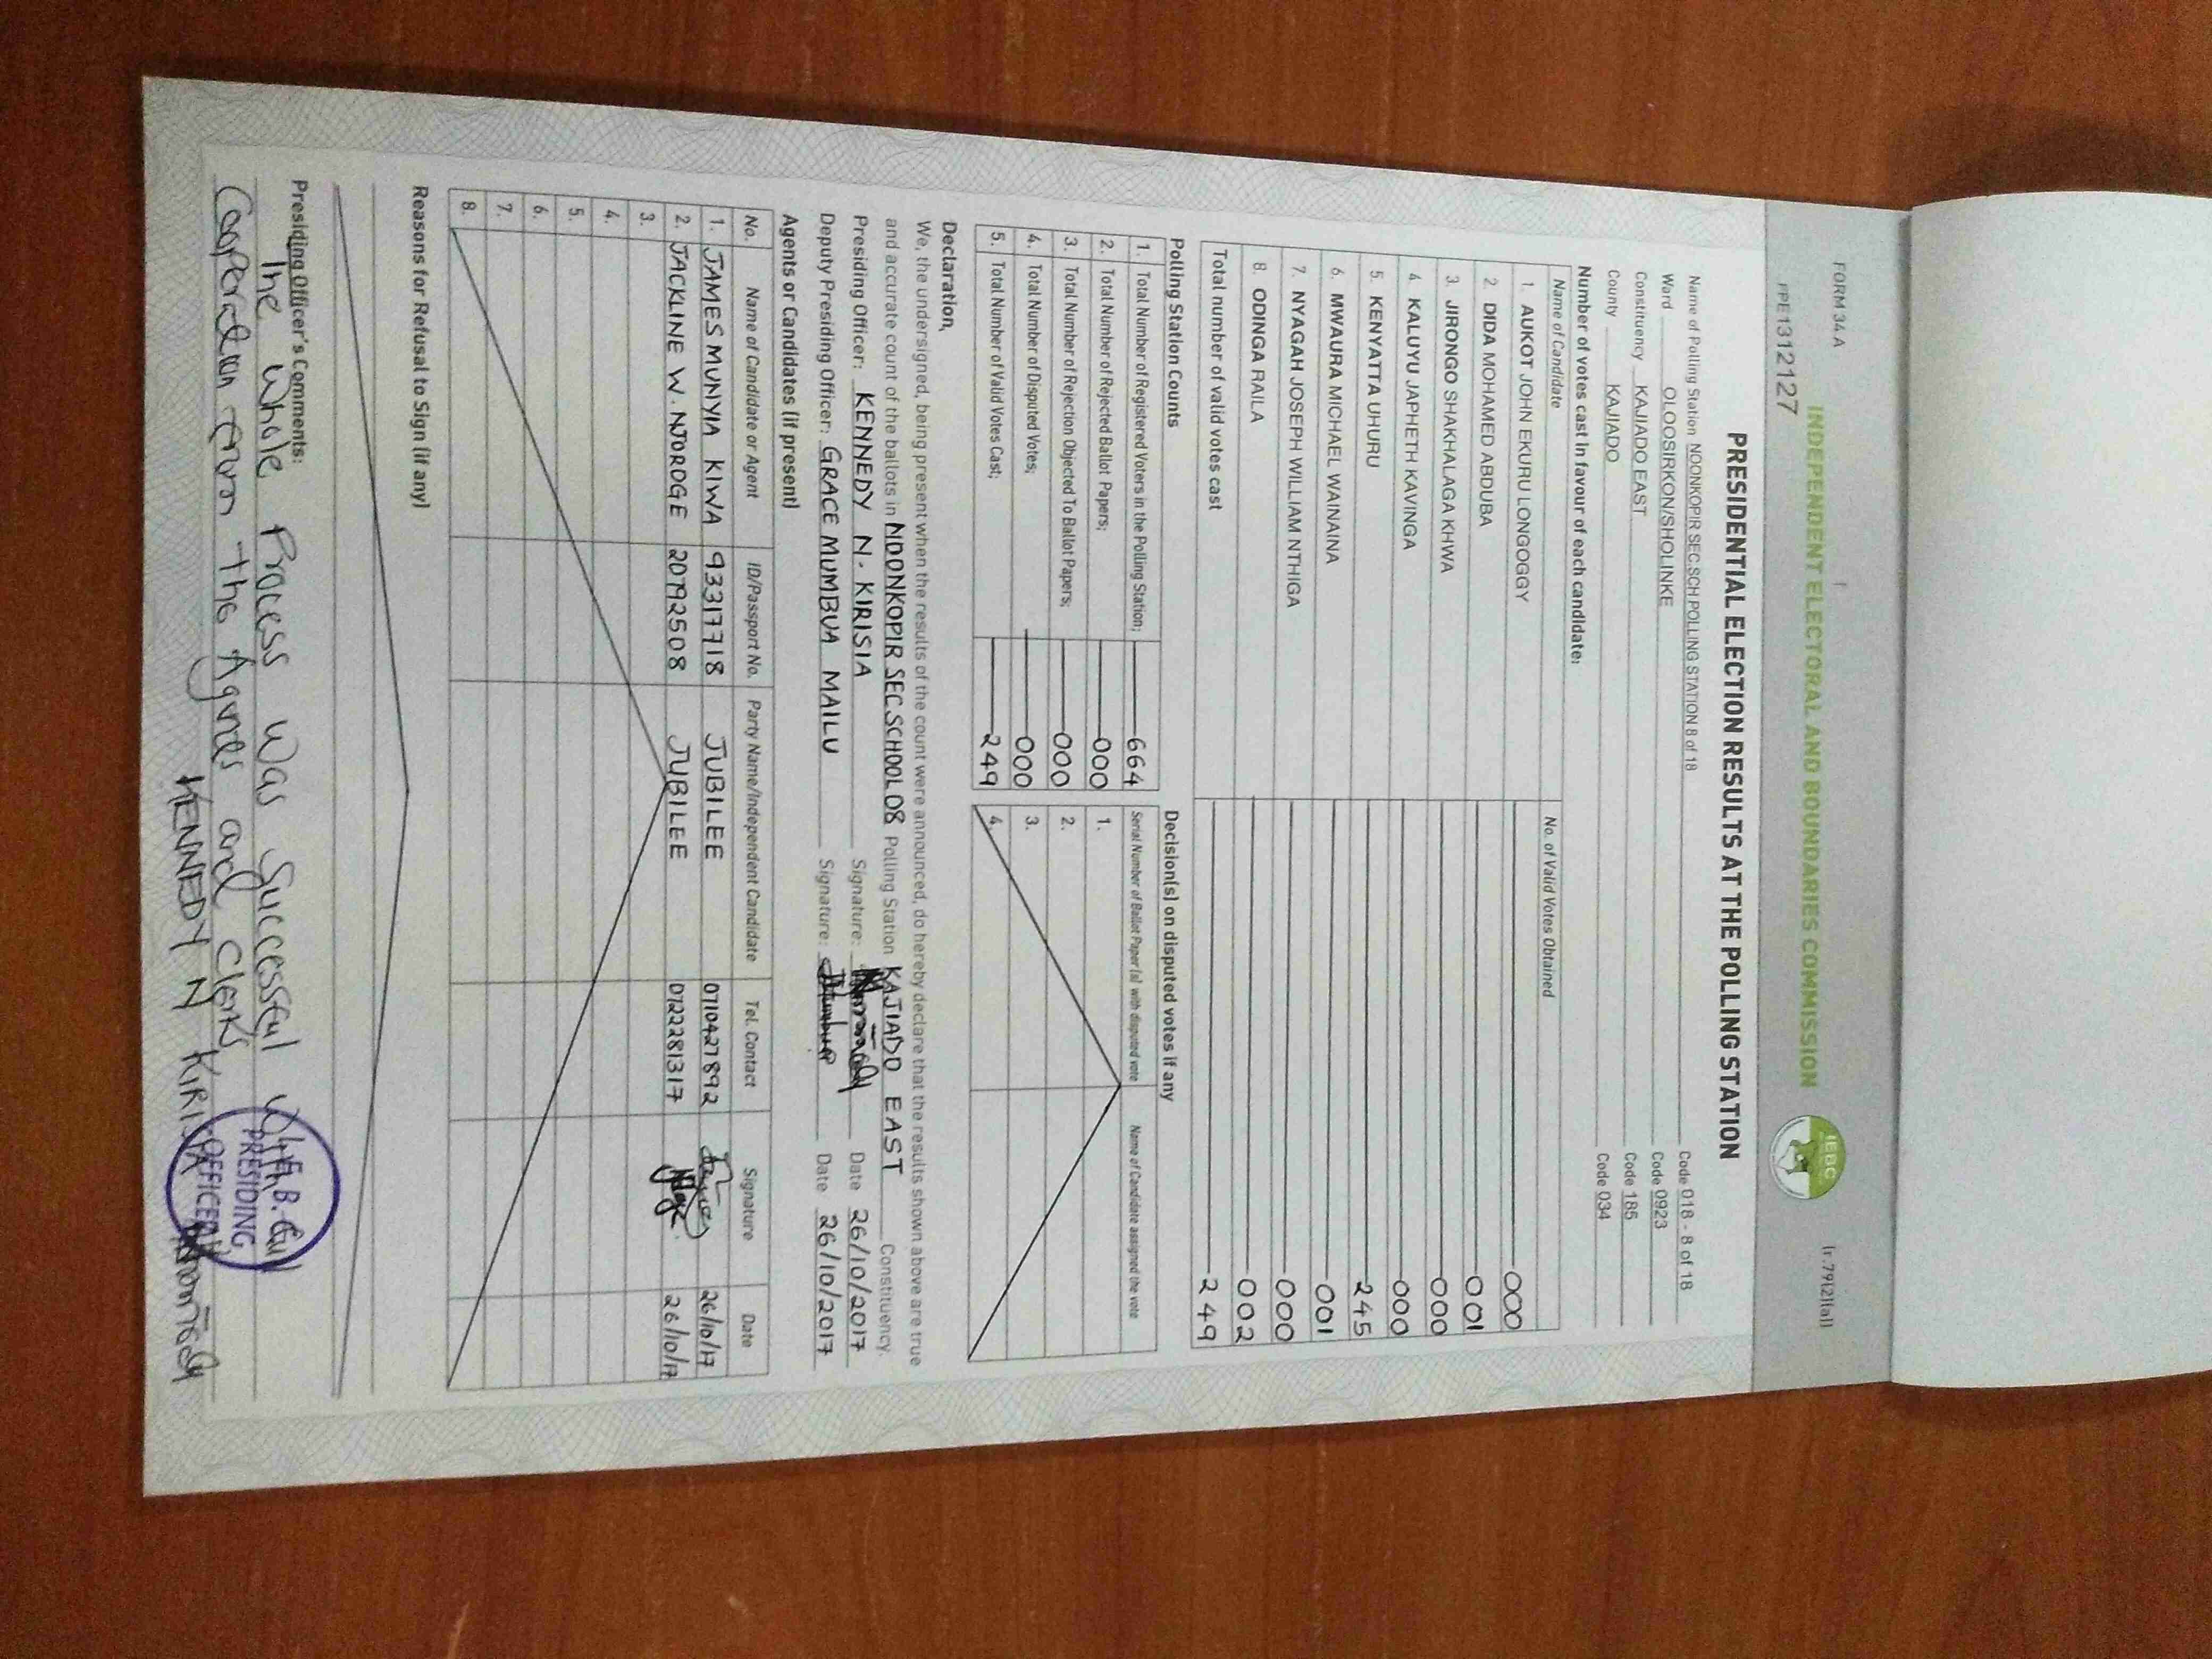 FORM 34 A
(r.79(2)(a))
INDEPENDENT ELECTORAL AND BOUNDARIES COMMISSION
IEBC
PPE1312127
PRESIDENTIAL ELECTION RESULTS AT THE POLLING STATION
Name of Polling Station NOONKOPIR SEC.SCH POLLING STATION 8 of 18 Code 018 - 8 of 18
Ward OLOOSIRKON/SHOLINKE Code 0923
Constituency KAJIADO EAST Code 185
County KAJIADO Code 034
Number of votes cast in favour of each candidate:
Name of Candidate No. of Valid Votes Obtained
1. AUKOT JOHN EKURU LONGOGGY 000
2. DIDA MOHAMED ABDUBA 001
3. JIRONGO SHAKHALAGA KHWA 000
4. KALUYU JAPHETH KAVINGA 000
5. KENYATTA UHURU 245
6. MWAURA MICHAEL WAINAINA 001
7. NYAGAH JOSEPH WILLIAM NTHIGA 000
8. ODINGA RAILA 002
Total number of valid votes cast 249
Polling Station Counts Decision(s) on disputed votes if any
1. Total Number of Registered Voters in the Polling Station; 664 Serial Number of Ballot Paper (s) with disputed vote Name of Candidate assigned the vote
2. Total Number of Rejected Ballot Papers; 000 1.
3. Total Number of Rejection Objected To Ballot Papers; 000 2.
4. Total Number of Disputed Votes; 000 3.
5. Total Number of Valid Votes Cast; 249 4.
Declaration,
We, the undersigned, being present when the results of the count were announced, do hereby declare that the results shown above are true
and accurate count of the ballots in NOONKOPIR SEC.SCHOOL 08 Polling Station KAJIADO EAST Constituency.
Presiding Officer: KENNEDY N. KIRISIA Signature: Date 26/10/2017
Deputy Presiding Officer: GRACE MUMBUA MAILU Signature: Date 26/10/2017
Agents or Candidates (if present)
No. Name of Candidate or Agent ID/Passport No. Party Name/Independent Candidate Tel. Contact Signature Date
1. JAMES MUNYIA KIWA 93317718 JUBILEE 0710427892 26/10/17
2. JACKLINE W. NJOROGE 20792508 JUBILEE 0722281317 26/10/17
3.
4.
5.
6.
7.
8.
Reasons for Refusal to Sign (if any)
Presiding Officer's Comments:
The whole Process was Successful with
Cooperation from the Agents and Clerks
KENNEDY N KIRISIA
PRESIDING
OFFICER